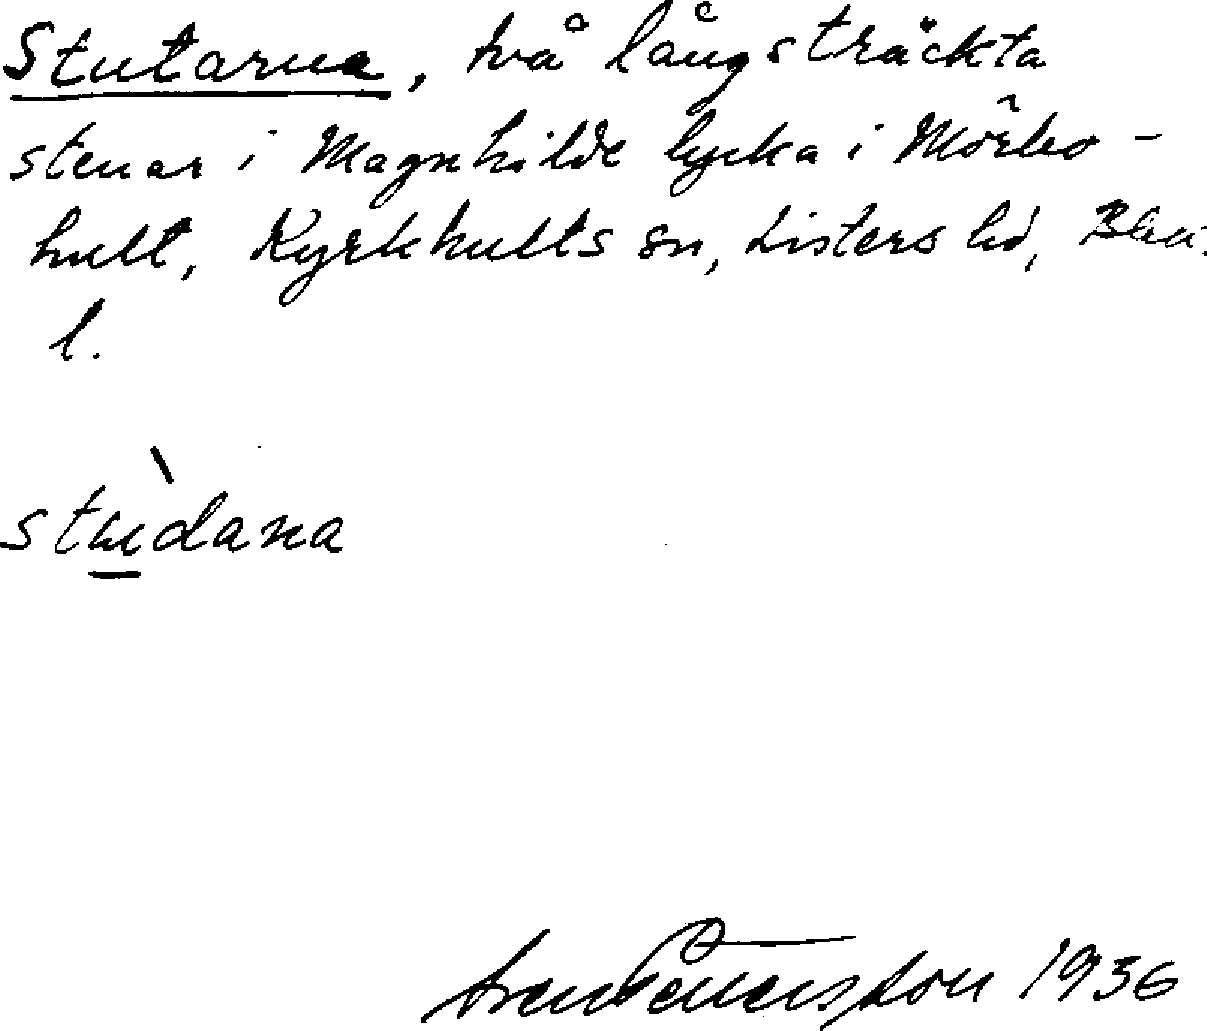 Stutarna, två långsträckta
stenar i Magnhilde lycka i Mörbo-
hult, Kyrkhults sn, Listers hd, Blek.
l.
stùdana
Sven Pettersson 1936